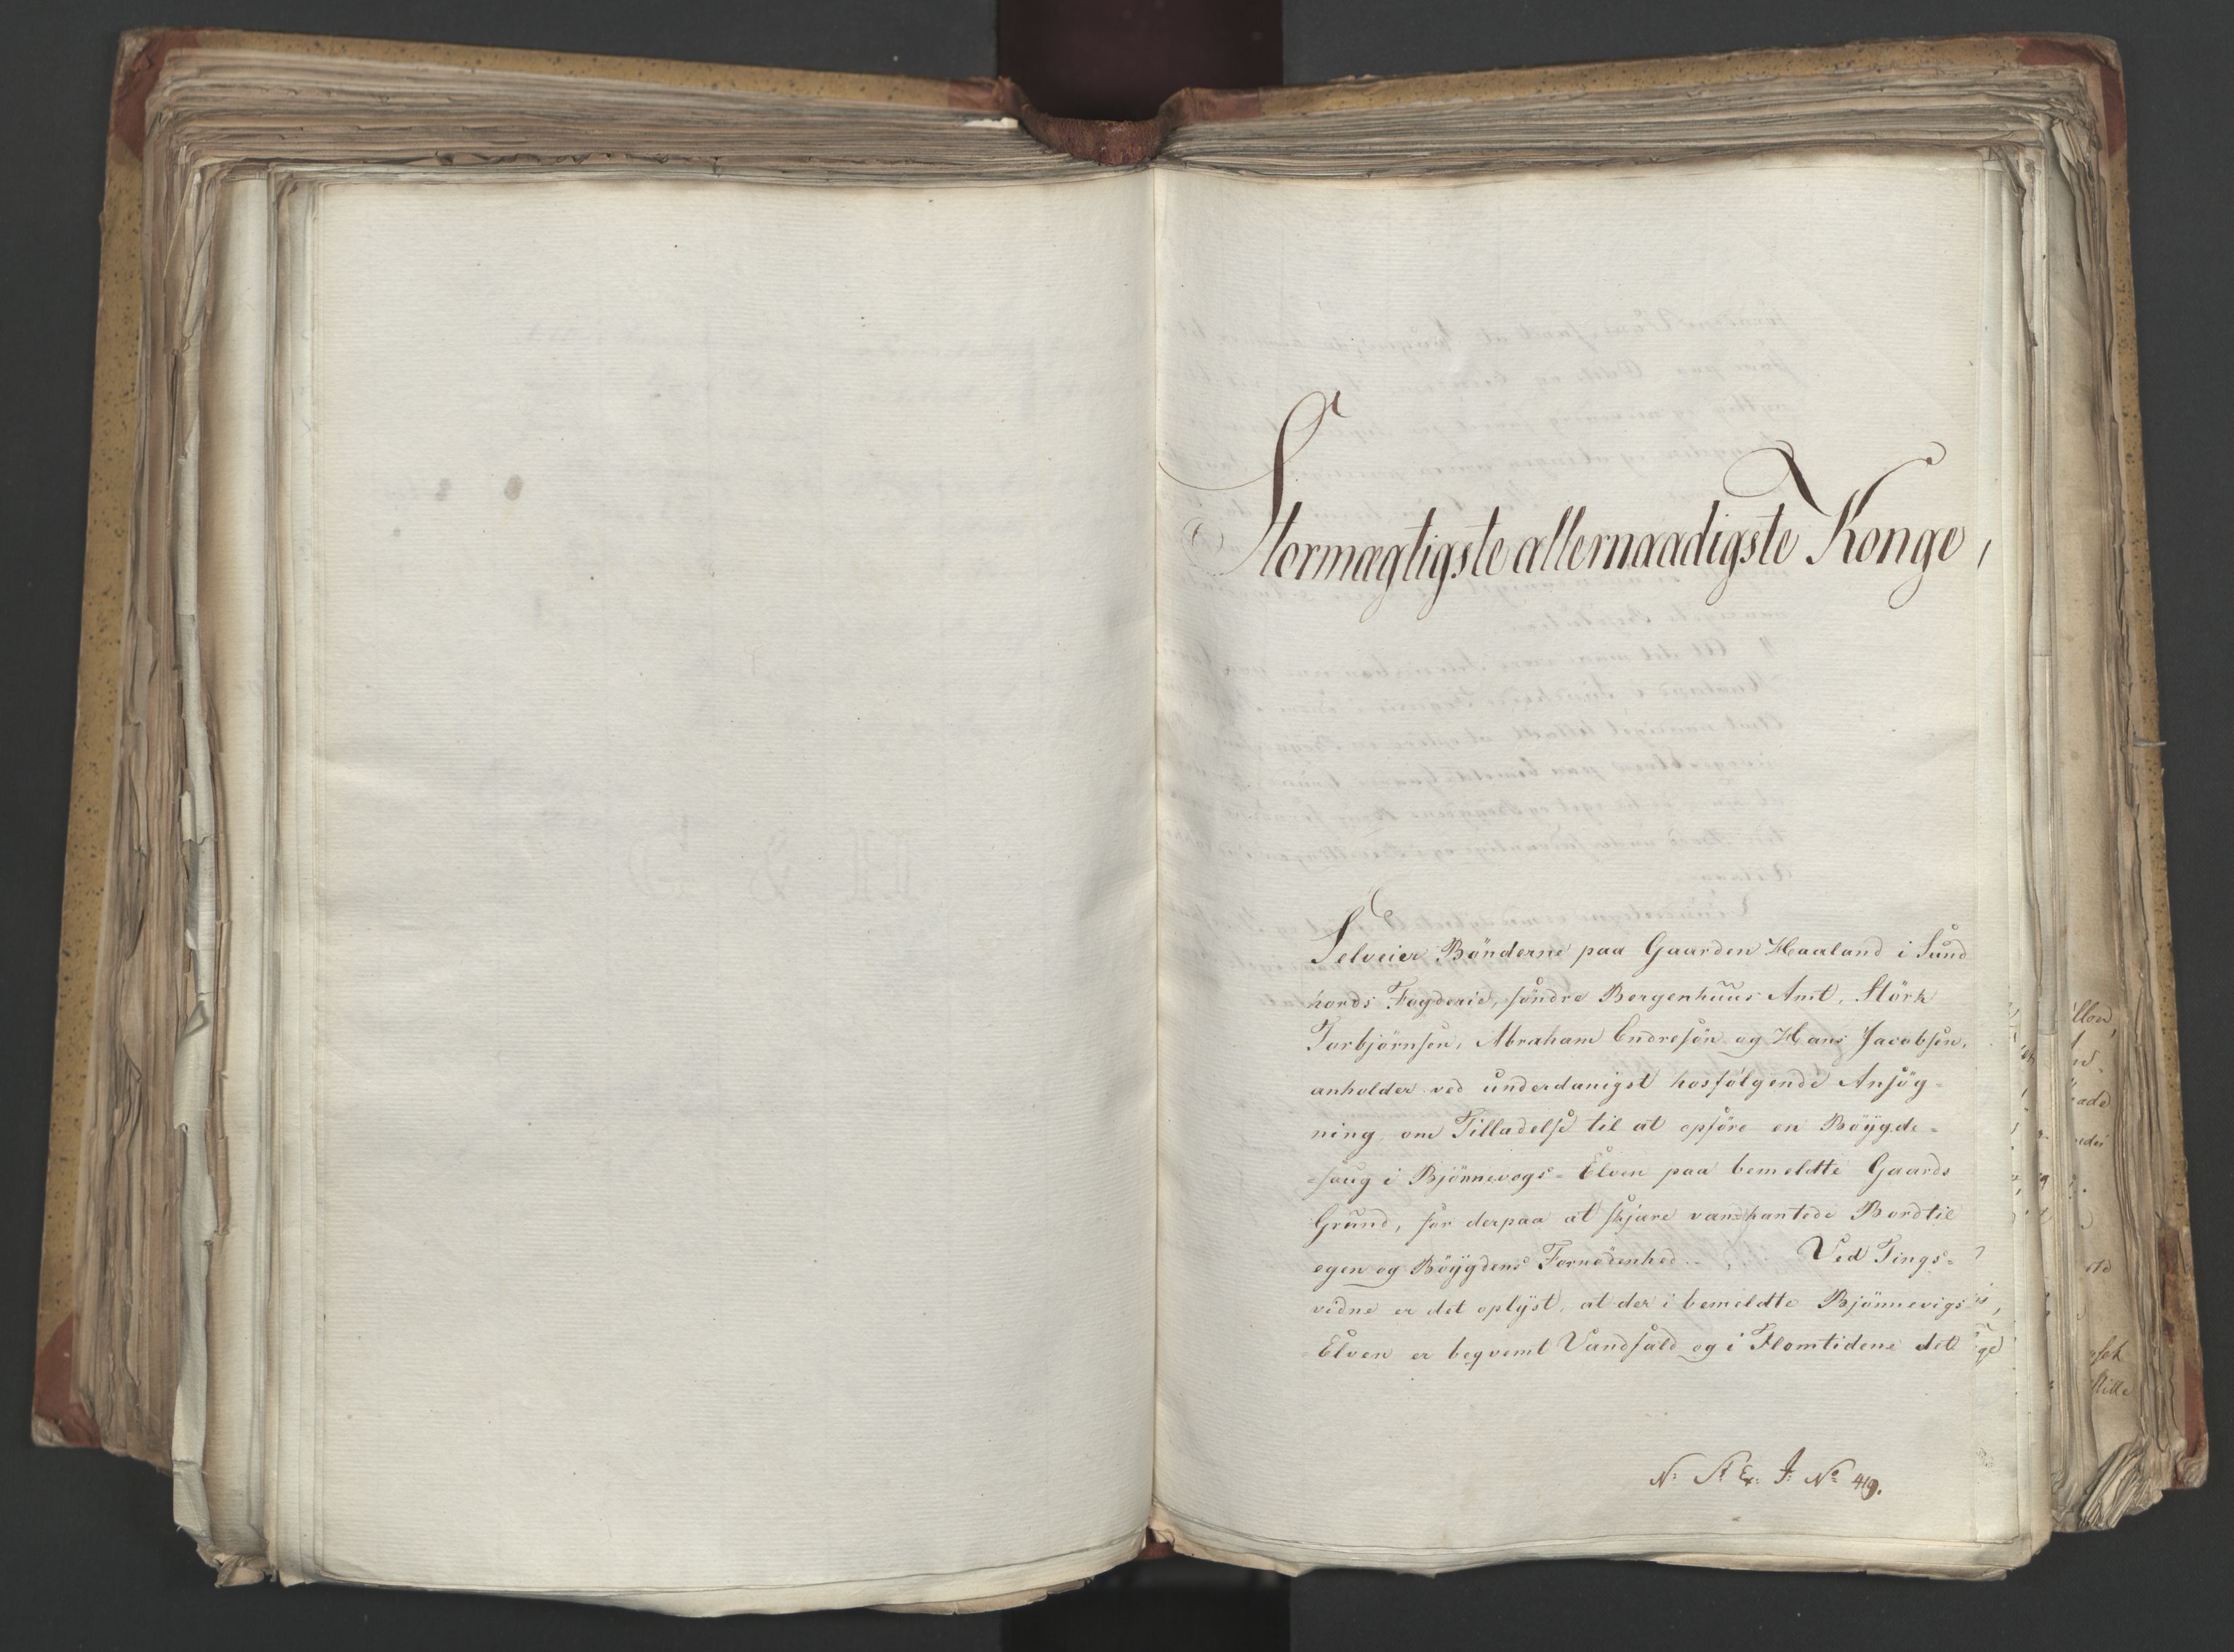 Stormægtigste allernaadigste Konge,
Selveier Bönderne paa Gaarden Haaland i Sund
hords Fogderie, söndre Bergenhuus Amt, Störk
Torbjörnsen, Abraham Endresön og Hans Jacobsen,
anholder ved underdanigst hosfölgende Ansög-
ning, om Tilladelse til at opföre en Böygde-
saug i Bjönnevogs-Elven paa bemeldte Gaards
Grund, for derpaa at skjære vandkantede Bord til
egen og Böygdens Fornödenhed. Ved Tings-
vidne er det oplyst, at der i bemeldte Bjönnevigs
Elven er beqvemt Vandfald og i Flomtidene det
N: R: Ex: J: No 419.